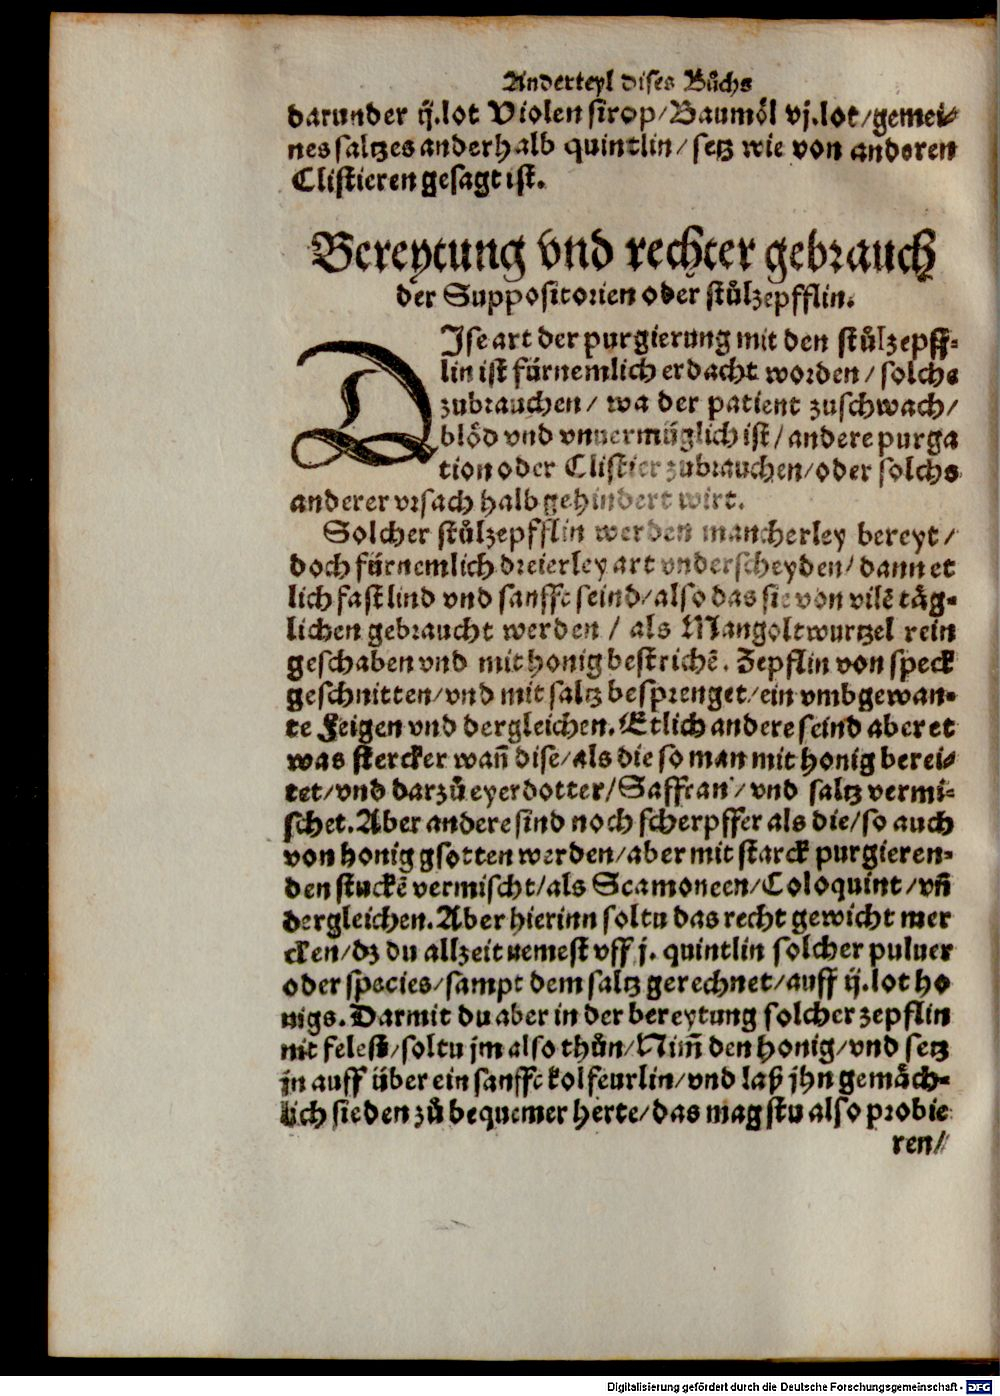 Anderteyl dises Bůchs
darunder ij.lot Violen sirop/Baumöl vj.lot/gemei⸗
nes saltzes anderhalb quintlin/setz wie von anderen
Clistieren gesagt ist.
Bereytung vnd rechter gebrauch
der Suppositorien oder stůlzepfflin.
DIse art der purgierung mit den stůlzepff⸗
lin ist fürnemlich erdacht worden/solchs
zubrauchen/ wa der patient zuschwach/
blöd vnd vnuermüglich ist/andere purga
tion oder Clistier zubrauchen/oder solchs
anderer vrsach halb gehindert wirt.
Solcher stůlzepfflin werden mancherley bereyt/
doch fürnemlich dreierley art vnderscheyden/dann et
lich fast lind vnd sanffe seind/also das sie von vilē täg⸗
lichen gebraucht werden/ als Mangoltwurtzel rein
geschaben vnd mit honig bestrichē. Zepflin von speck
geschnitten/vnd mit saltz besprenget/ein vmbgewan⸗
te Feigen vnd dergleichen. Etlich andere seind aber et
was stercker wañ dise/als die so man mit honig berei⸗
tet/vnd darzů eyerdotter/Saffran/ vnd saltz vermi⸗
schet. Aber andere sind noch scherpffer als die/so auch
von honig gsotten werden/aber mit starck purgieren⸗
den stuckē vermischt/als Scamoneen/Coloquint/vñ
dergleichen. Aber hierinn soltu das recht gewicht mer
cken/dz du allzeit nemest vff j. quintlin solcher puluer
oder species/sampt dem saltz gerechnet/auff ij.lot ho
nigs. Darmit du aber in der bereytung solcher zepflin
nit felest/soltu jm also thůn/Nim̄ den honig/vnd setz
jn auff über ein sanffe kolfeurlin/vnd laß jhn gemäch⸗
lich sieden zů bequemer herte/das magstu also probie
ren/
Digitalisierung gefördert durch die Deutsche Forschungsgemeinschaft - DFG